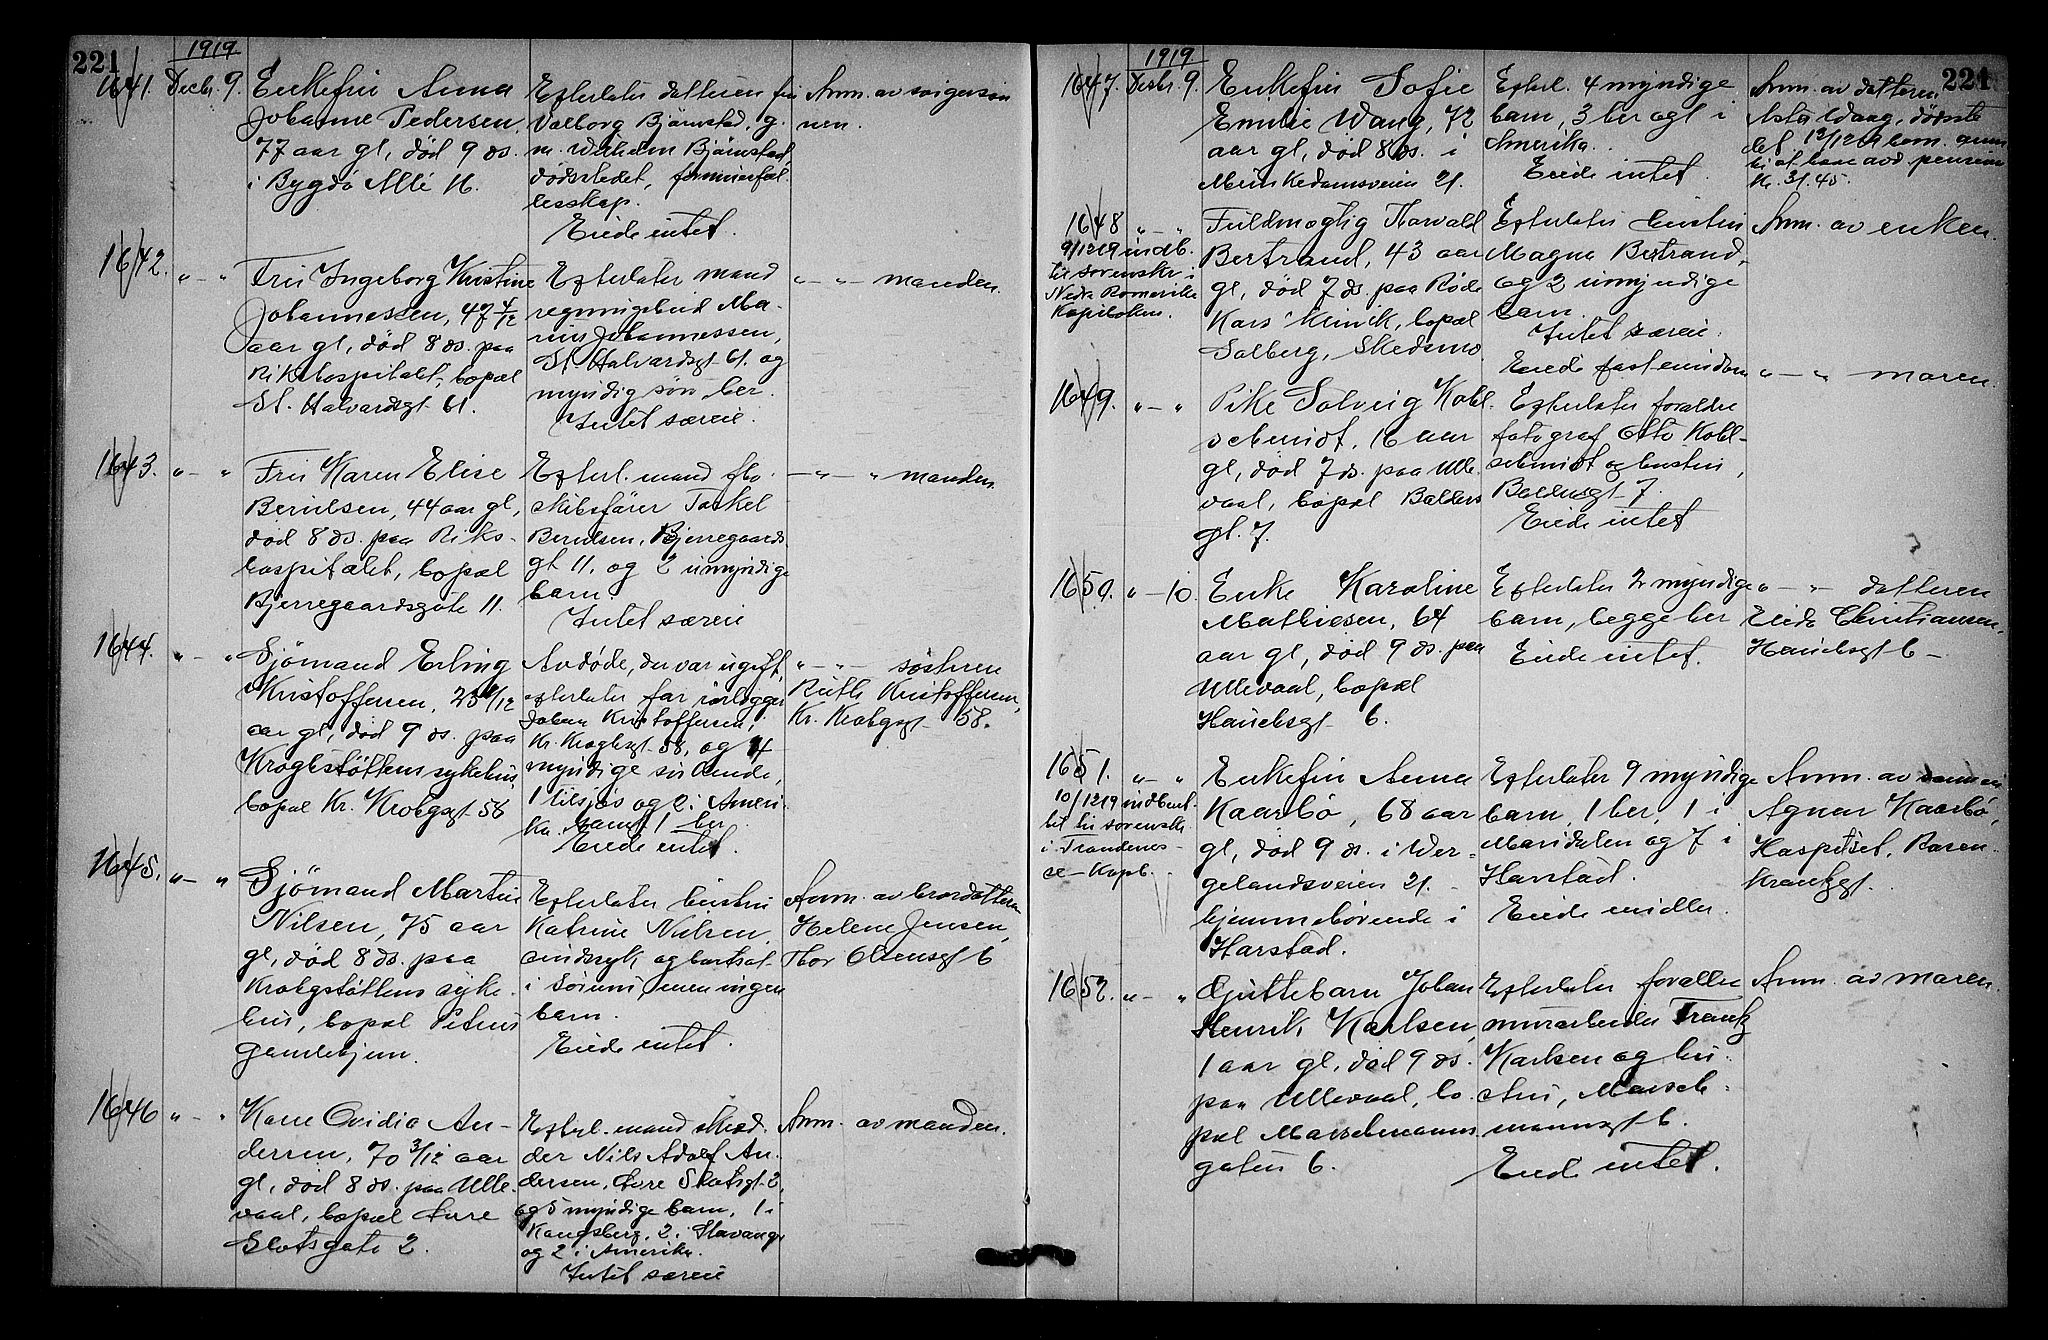 221
1919
1641. Decbr. 9. Enkefru Anna
Johanne Pedersen,
77 aar gl, død 9 ds.
i Bygdø Allé 16.
Efterlater datteren fru
Valborg Bjørnstad, g.
m. Wilhelm Bjørnstad,
dødsstedet, formuesfæl-
lesskap.
Eiede intet.
Anm. av svigersøn
nen.
1642. " - " Fru Ingeborg Kristine
Johannessen, 47 4/12
aar gl, død 8 ds. paa
Rikshospitalet, bopæl
St. Halvardsgt. 61.
Efterlater mand
regningsbud Ma-
rius Johannessen,
St. Halvardsgt 61. og
myndig søn her.
Intet særeie.
" - " - manden.
1643. " - " Fru Karen Elise
Berulsen, 44 aar gl,
død 8 ds. paa Riks-
hospitalet, bopæl
Bjerregaardsgate 11.
Efterl. mand fhv.
skibsfører Torkel
Berulsen, Bjerregaards
gt 11. og 2 umyndige
barn.
Intet særeie
- " - " manden.
1644. " - " Sjømand Erling
Kristoffersen, 25 /12
aar gl, død 9 ds. paa
Kroghstøttens sykehus,
bopæl Kr. Krohgsgt 58
Avdøde, der var ugift,
efterlater far rørlægger
Johan Kristoffersen,
Kr. Kroghsgt. 58, og 4
myndige søskende,
1 tilsjøs og 2 i Ameri-
ka samt 1 her.
Eiede intet.
" - " - søsteren
Ruth Kristoffersen,
Kr. Krohgsgt 58.
1645. " - " Sjømand Martin
Nilsen, 75 aar
gl, død 8 ds. paa
Krohgstøttens syke-
hus, bopæl Petrus
gamlehjem.
Efterlater hustru
Katrine Nilsen,
sindssyk og bortsat
i Sørum, men ingen
barn.
Eiede intet.
Anm. av brordatteren
Helene Jensen,
Thor Olsensgt 6
1646 " - " Kone Ovidia An-
dersen, 70 3/12 aar
gl, død 8 ds. paa Ulle-
vaal, bopæl Øvre
Slotsgate 2.
Efterl. mand skræd-
der Nils Adolf An-
dersen, Øvre Slotsgt. 2,
og 5 myndige barn, 1 i
Kongsberg, 2 i Stavanger
og 2 i Amerika.
Intet særeie
Anm. av manden.
221
1919
1647. Decbr. 9. Enkefru Sofie
Emilie Wang, 72
aar gl, død 8 ds. i
Munkedamsveien 21.
Efterl. 4 myndige
barn, 3 her og 1 i
Amerika.
Eiede intet.
Anm. av datteren
Asta Waag, dødsste
det. 12/12 19 bem.
avd. pension
kr. 31.45.
1648 " - "
9/12 19 indb.
til sorenskr. i
Nedre Romerike
Kopiboken.
Fuldmægtig Thorvald
Bertrand, 43 aar
gl, død 7 ds. paa Røde
Kors Klinik, bopæl
Solberg, Skedsmo.
Efterlater hustru
Magna Bertrand,
og 2 umyndige
barn.
Intet særeie.
Eiede fast eiendom
Anm. av enken.
1649. " - " Pike Solveig Kohl-
schmidt, 16 aar
gl, død 7 ds. paa Ulle-
vaal, bopæl Balders
gt. 7.
Efterlater forældre
fotograf Otto Kohl-
schmidt og hustru,
Baldersgt 7.
Eiede intet
" - " moren.
1650. " - 10. Enke Karoline
Mathiesen, 64
aar gl, død 9 ds. paa
Ullevaal, bopæl
Hauchsgt 6.
Efterlater 2 myndige
barn, begge her
Eiede intet.
" - " datteren
Christiansen,
Hauchsgt 6 -
1651. " - "
10/12 19 indberet-
tet til sorenskr.
i Trondenes -
se - Kopb.
Enkefru Anna
Kaarbø, 68 aar
gl, død 9 ds. i Wer-
gelandsveien 21. -
hjemmehørende i
Harstad.
Efterlater 9 myndige
barn, 1 her, 1 i
Maridalen og 7 i
Harstad.
Eiede midler.
Anm. av sønnen
Agnar Kaarbø,
Hospitset, Rosen-
krantzgt.
1652. " - " Guttebarn Johan
Henrik Karlsen,
1 aar gl, død 9 ds.
paa Ullevaal, bo-
pæl Marschmanns
gaten 6.
Efterlater forældre
murarbeider Frantz
Karlsen og hu-
stru, Marsch-
mannsgt 6.
Eiede intet.
Anm. av moren.